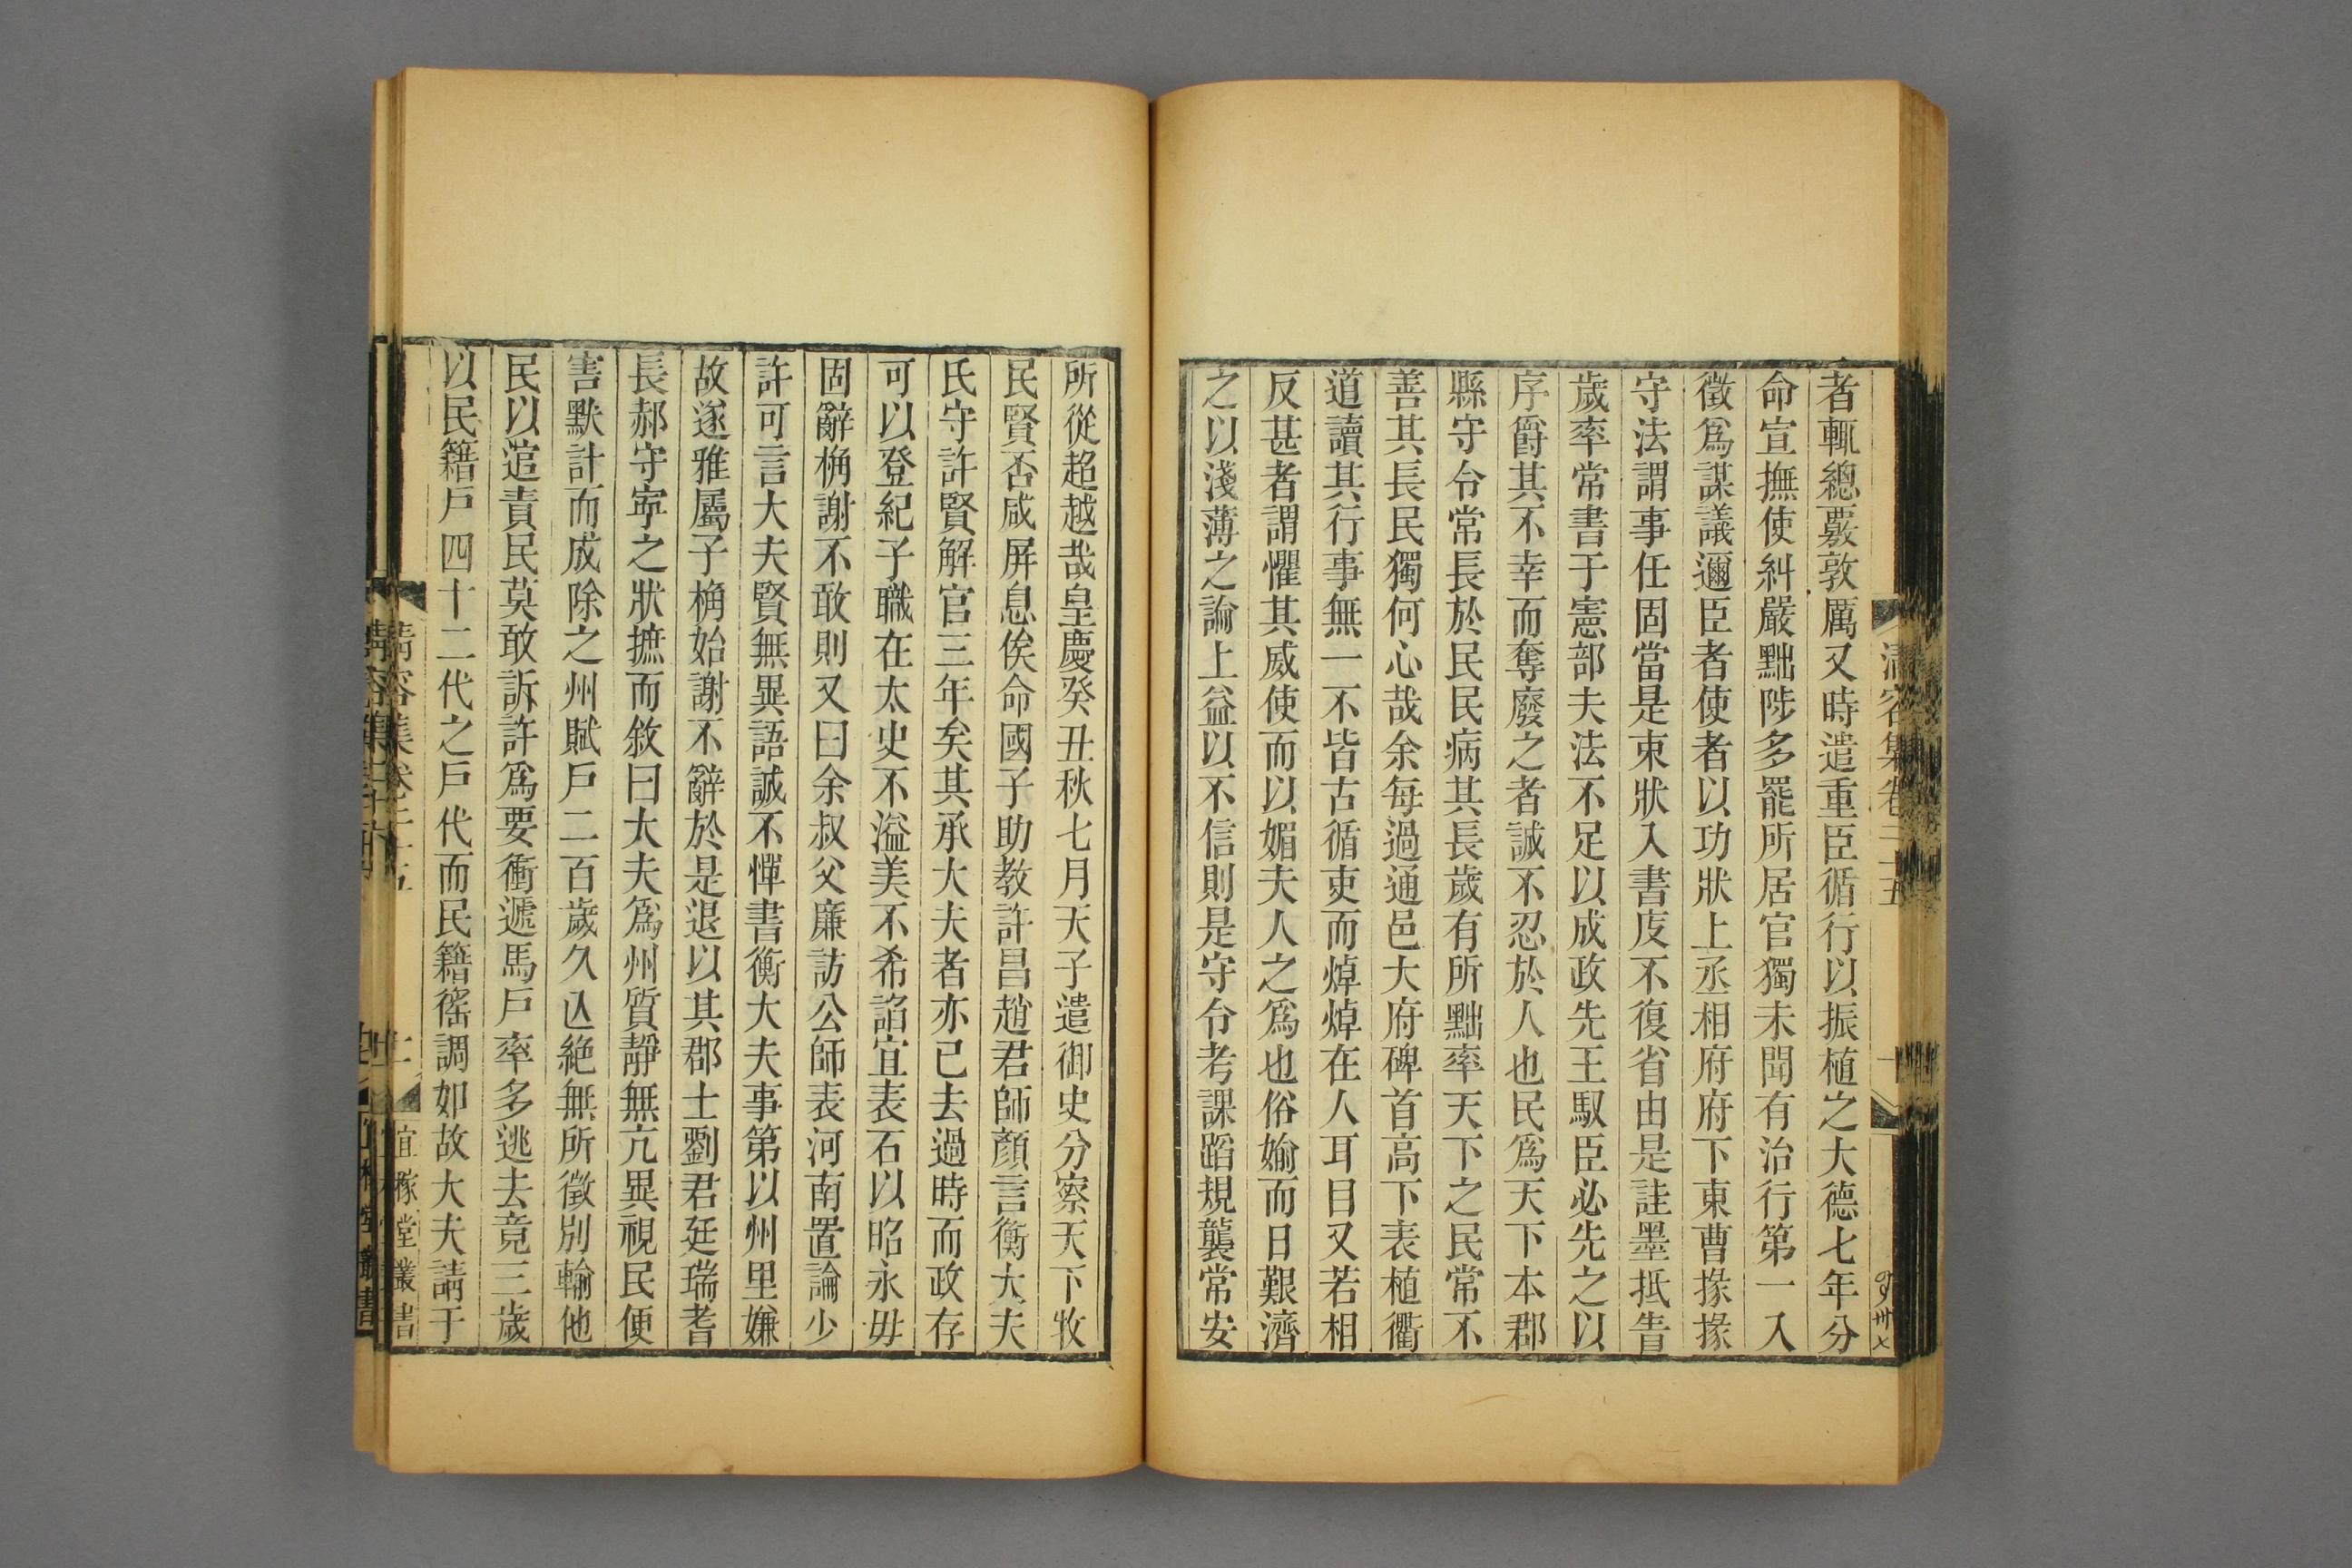 清容集卷二十五
者輒總覈敦厲又時遣重臣循行以振植之大德七年分
命宣撫使糾嚴黜陟多罷所居官獨未聞有治行第一入
徵爲謀議邇臣者使者以功狀上丞相府府下東曹掾掾
守法謂事任固當是束狀入書庋不復省由是詿墨抵眚
歲率常書于憲部夫法不足以成政先王馭臣必先之以
序爵其不幸而奪廢之者誠不忍於人也民爲天下本郡
縣守令常長於民民病其長歲有所黜率天下之民常不
善其長民獨何心哉余每過通邑大府碑首高下表植衢
道讀其行事無一不皆古循吏而焯焯在人耳目又若相
反甚者謂懼其威使而以媚夫人之爲也俗媮而日艱濟
之以淺薄之論上益以不信則是守令考課蹈規襲常安
所從超越哉皇慶癸丑秋七月天子遣御史分察天下牧
民賢否咸屏息俟命國子助教許昌趙君師顏言衡大夫
氏守許賢解官三年矣其承大夫者亦已去過時而政存
可以登紀子職在太史不溢美不希諂宜表石以昭永毋
固辭桷謝不敢則又曰余叔父廉訪公師表河南置論少
許可言大夫賢無異語誠不憚書衡大夫事第以州里嫌
故遂雅屬子桷始謝不辭於是退以其郡士劉君廷瑞耆
長郝守寧之狀摭而敘曰大夫爲州質靜無亢異視民便
害默計而成除之州賦戶二百歲久亾絶無所徵別輸他
民以逭責民莫敢訴許爲要衝遞馬戶率多逃去竟三歲
以民籍戶四十二代之戶代而民籍徭調如故大夫請于
清容集卷二十五
宜稼堂叢書